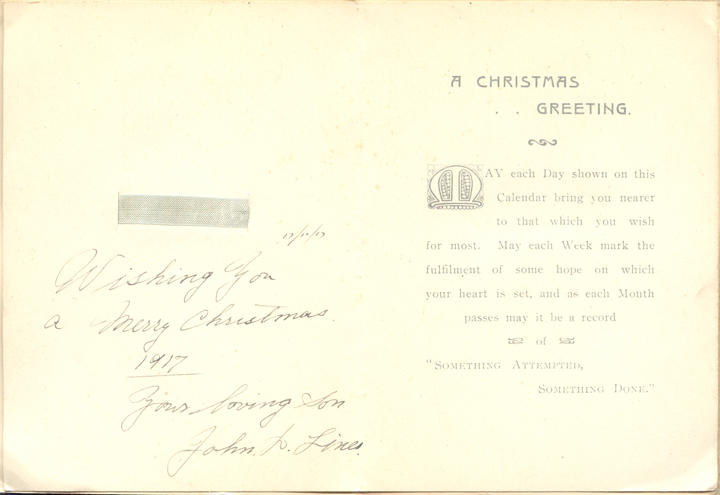 Wishing You
a Merry Christmas.
1917
Your loving Son
John. D. Lines.
A CHRISTMAS
. . GREETING.
MAY each Day shown on this
Calendar bring you nearer
to that which you wish
for most. May each Week mark the
fulfilment of some hope on which
your heart is set, and as each Month
passes may it be a record
of
"SOMETHING ATTEMPTED,
SOMETHING DONE."